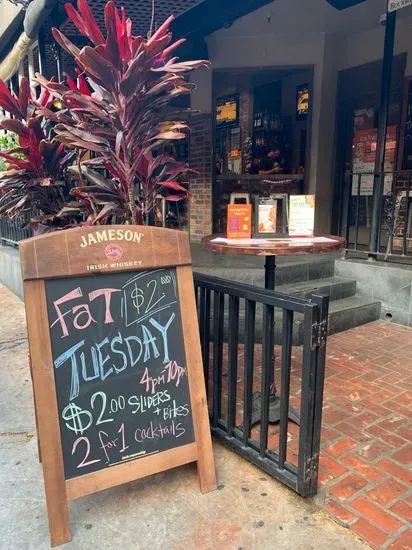 JAMESON
IRISH WHISKEY
FaT $2
TUESDAY
4pm-10pm
$2.00 SLIDERS + BiTes
2 for 1 cocktails